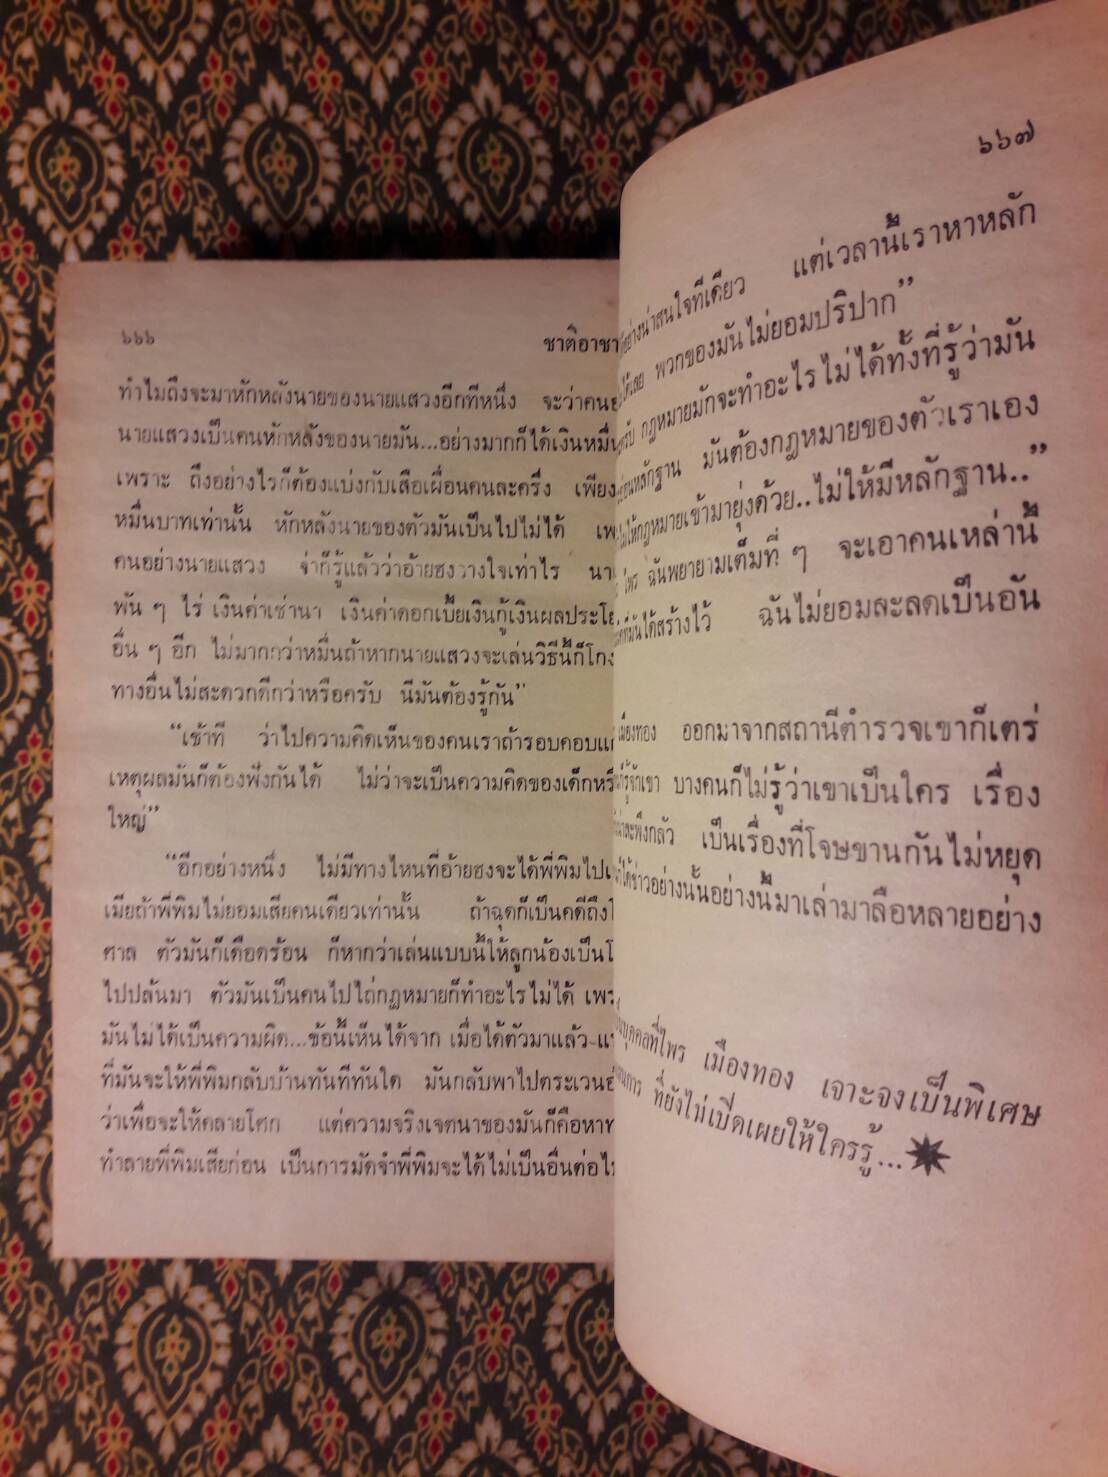 ๖๖๖
ชาติอาชา
ทำไมถึงจะมาหักหลังนายของนายแสวงอีกทีหนึ่ง จะว่าคนอ
นายแสวงเป็นคนหักหลังของนายมัน...อย่างมากก็ได้เงินหมื่น
เพราะ ถึงอย่างไรก็ต้องแบ่งกับเสือเผื่อนคนละครึ่ง เพียง
หมื่นบาทเท่านั้น หักหลังนายของตัวมันเป็นไปไม่ได้ เพ
คนอย่างนายแสวง จ่าก็รู้แล้วว่าอ้ายฮงวางใจเท่าไร นา
พัน ๆ ไร่ เงินค่าเช่านา เงินค่าดอกเบี้ยเงินกู้เงินผลประโย
อื่น ๆ อีก ไม่มากกว่าหมื่นถ้าหากนายแสวงจะเล่นวิธีนี้ก็โกง
ทางอื่นไม่สะดวกดีกว่าหรือครับ นี่มันต้องรู้กัน”
“เข้าที ว่าไปความคิดเห็นของคนเราถ้ารอบคอบแก
เหตุผลมันก็ต้องฟังกันได้ ไม่ว่าจะเป็นความคิดของเด็กหรื
ใหญ่”
“อีกอย่างหนึ่ง ไม่มีทางไหนที่อ้ายฮงจะได้พี่พิมไปเ
เมียถ้าพี่พิมไม่ยอมเสียคนเดียวเท่านั้น ถ้าฉุดก็เป็นคดีถึงโ
ศาล ตัวมันก็เดือดร้อน ก็หากว่าเล่นแบบนี้ให้ลูกน้องเป็นโ
ไปปล้นมา ตัวมันเป็นคนไปไถ่กฎหมายก็ทำอะไรไม่ได้ เพร
มันไม่ได้เป็นความผิด...ข้อนี้เห็นได้จาก เมื่อได้ตัวมาแล้ว แท
ที่มันจะให้พี่พิมกลับบ้านทันทีทันใด มันกลับพาไปตระเวนอ
ว่าเพื่อจะให้คลายโศก แต่ความจริงเจตนาของมันก็คือหาท
ทำลายพี่พิมเสียก่อน เป็นการมัดจำพี่พิมจะได้ไม่เป็นอื่นต่อไ
๖๖๗
อย่างน่าสนใจทีเดียว แต่เวลานี้เราหาหลัก
ได้เลย พวกของมันไม่ยอมปริปาก”
ครับ กฎหมายมักจะทำอะไรไม่ได้ทั้งที่รู้ว่ามัน
หลักฐาน มันต้องกฎหมายของตัวเราเอง
ไม่ให้กฎหมายเข้ามายุ่งด้วย..ไม่ให้มีหลักฐาน..”
ไพร ฉันพยายามเต็มที่ ๆ จะเอาคนเหล่านี้
ที่มันได้สร้างไว้ ฉันไม่ยอมละลดเป็นอัน
เมืองทอง ออกมาจากสถานีตำรวจเขาก็เตร่
รู้จักเขา บางคนก็ไม่รู้ว่าเขาเป็นใคร เรื่อง
น่าสะพึงกลัว เป็นเรื่องที่โจษขานกันไม่หยุด
ได้ข่าวอย่างนั้นอย่างนี้มาเล่ามาลือหลายอย่าง
บุคคลที่ไพร เมืองทอง เจาะจงเป็นพิเศษ
การ ที่ยังไม่เปิดเผยให้ใครรู้...